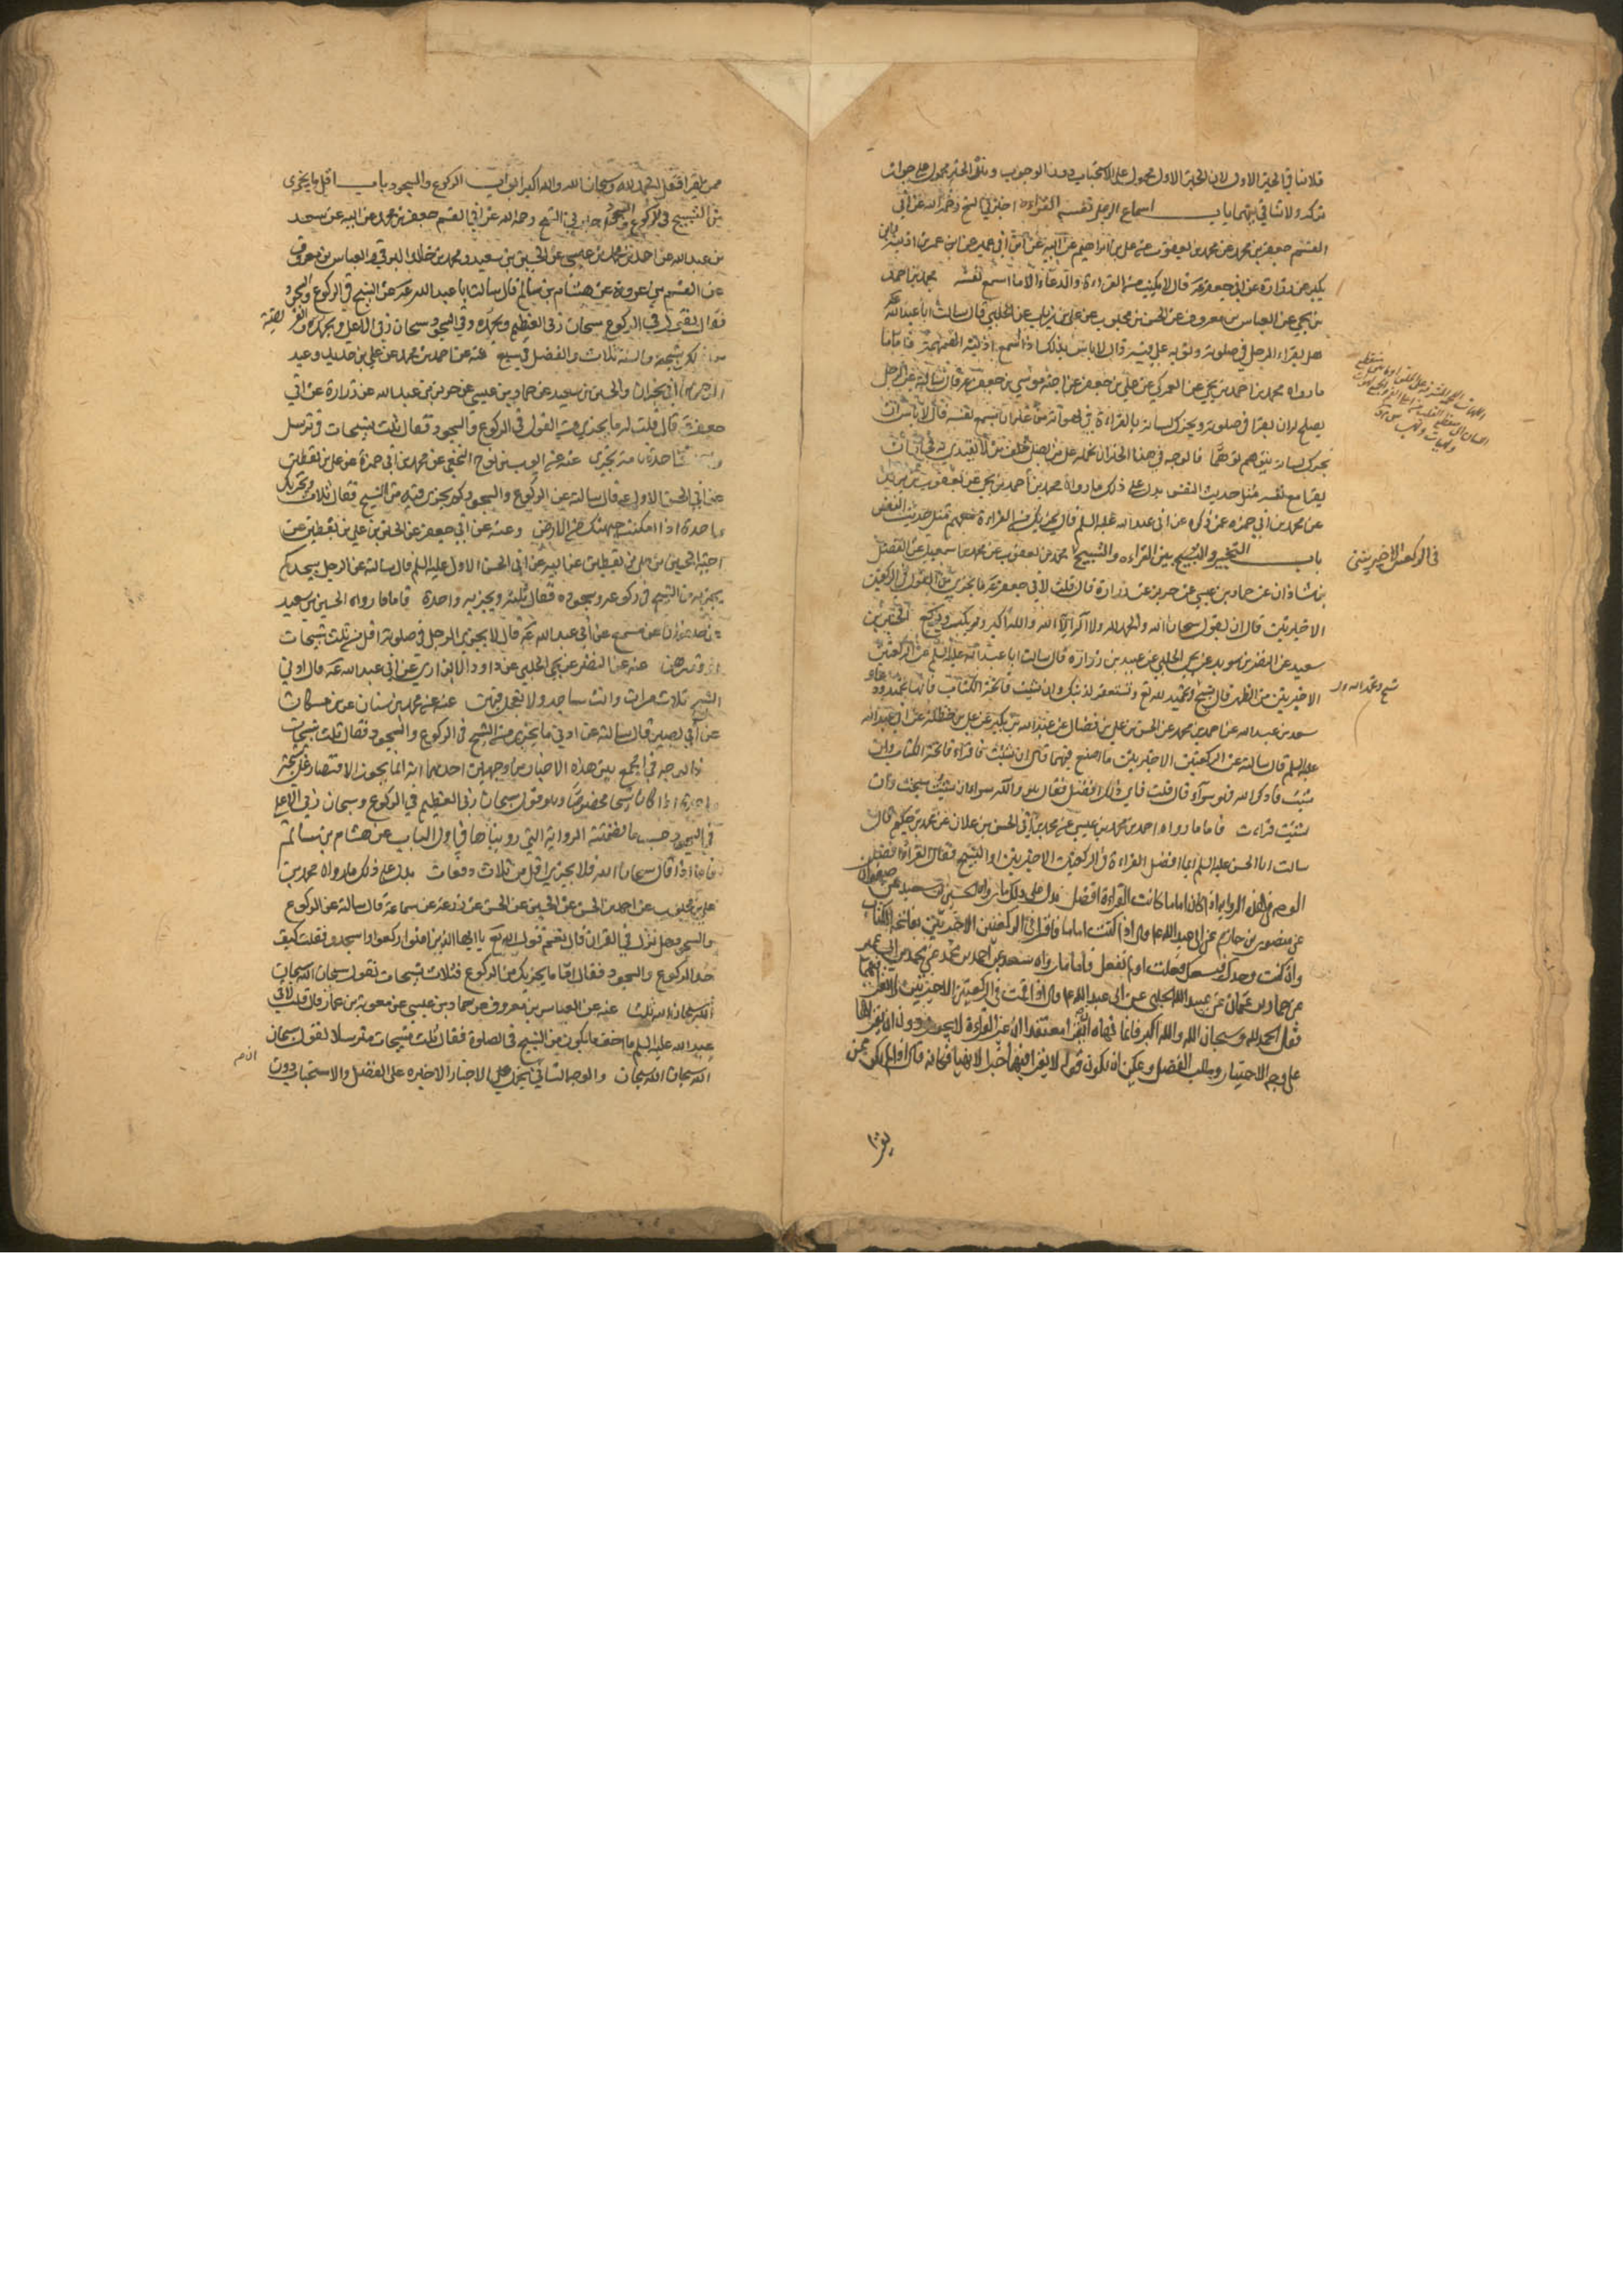 فلا ينافي الخبر الاول لان الخبر الاول محمول على الاستحباب دون الوجوب وهذا الخبر محمول على جواز
تركه ولا تنافي بينهما باب اسماع الرجل نفسه القراءة اخبرني الشيخ رحمه الله عن ابي
القسم جعفر بن محمد عن محمد بن يعقوب عن علي بن ابراهيم عن ابيه عن ابن ابي عمير عن ابن عمر بن اذينة وابن
بكير عن زرارة عن ابي جعفر عه قال لا يكتب من القراءة والدعاء الا ما اسمع نفسه محمد بن احمد
بن يحيى عن العباس بن معروف عن الحسن بن محبوب عن علي بن رئاب عن الحلبي قال سالت ابا عبد الله عه
هل يقراء الرجل في صلوته وثوبه على فيه قال لا باس بذلك اذا اسمع اذنيه الهمهمة فاما ما
ما رواه محمد بن احمد بن يحيى عن العمركي عن علي بن جعفر عن اخيه موسى بن جعفر عه قال سالته عن الرجل
يصلح له ان يقرا في صلوته ويحرك لسانه بالقراءة في لهواته من غير ان يسمع نفسه قال لا باس ان
يحرك لسانه يتوهم توهما فالوجه في هذا الخبر ان نحمله على من يصلي خلف من لا يقتدي به فجائز ان
يقرا مع نفسه مثل حديث النفس يدل على ذلك ما رواه محمد بن احمد بن يحيى عن يعقوب بن يزيد
عن محمد بن ابي حمزه عمن ذكره عن ابي عبد الله عليه السلم قال يجزيك من القراءة معهم مثل حديث النفس
باب التخيير بين القراءه والتسبيح في الركعتين الاخيرتين محمد بن يعقوب عن محمد بن اسمعيل عن الفضل
بن شاذان عن حماد بن عيسى عن حريز عن زرارة قال قلت لابي جعفر عه ما يجزي من القول في الركعتين
الاخيرتين قال ان يقول سبحان الله والحمد لله ولا اله الا الله والله اكبر ويكبر ويركع الحسين بن
سعيد عن النضر بن سويد عن يحيى الحلبي عن عبيد بن زرارة قال سالت ابا عبد الله عليه السلم عن الركعتين
الاخيرتين من الظهر قال تسبح وتحمد لله تع وتستغفر لذنبك وان شئت فاتحة الكتاب فانها تحميد ودعاء
سعد بن عبد الله عن احمد بن محمد عن الحسن بن علي بن فضال عن عبد الله بن بكير عن علي بن حنظلة عن ابي عبد الله
عليه السلم قال سالته عن الركعتين الاخيرتين ما اصنع فيهما قال ان شئت فاقراء فاتحة الكتاب وان
شئت فاذكر الله فهو سواء قال قلت فاي ذلك افضل فقال هما والله سواء ان شئت سبحت وان
شئت قراءت فاما ما رواه احمد بن محمد بن عيسى عن محمد بن ابي الحسن بن علان عن محمد بن حكيم قال
سالت ابا الحسن عليه السلم ايما افضل القراءة في الركعتين الاخيرتين او التسبيح فقال القراءة افضل
الوجه في هذه الرواية اذا كان اماما كانت القراءة افضل يدل على ذلك ما رواه الحسين بن سعيد عن صفوان
عن منصور بن حازم عن ابي عبد الله عه قال اذا كنت اماما فاقرا في الركعتين الاخيرتين بفاتحة الكتاب
وان كنت وحدك فيسعك فعلت اولم تفعل فاما ما رواه سعد عن احمد بن محمد عن محمد بن ابي عمير
عن حماد بن عثمان عن عبيد الله الحلبي عن ابي عبد الله عه قال اذا قمت في الركعتين الاخيرتين لا تقرا فيهما
فقل الحمد لله وسبحان الله والله اكبر فانما نهاه ان يقرا معتقدا ان غير القراءة لا يجوز دون ان يقراها
على وجه الاختيار وطلب الفضل ويمكن ان يكون قوله لا تقرا فيهما خبرا لا نهيا فكانه قال اذا لم تكن ممن
يقرا
في الركعتين الاخيرتين
ممن يقرا فقل الحمد لله وسبحان الله والله اكبر ابواب الركوع والسجود باب اقل ما يجزي
من التسبيح في الركوع والسجود اخبرني الشيخ رحمه الله عن ابي القسم جعفر بن محمد عن ابيه عن سعد
بن عبد الله عن احمد بن محمد بن عيسى عن الحسين بن سعيد ومحمد بن خالد البرقي والعباس بن معروف
عن القسم بن عروة عن هشام بن سالم قال سالت ابا عبد الله عه عن التسبيح في الركوع والسجود
فقال تقول في الركوع سبحان ربي العظيم وبحمده وفي السجود سبحان ربي الاعلى وبحمده الفريضة
من ذلك تسبيحة والسنة ثلاث والفضل في سبع عنه عن احمد بن محمد عن علي بن حديد وعبد
الرحمن بن ابي نجران والحسين بن سعيد عن حماد بن عيسى عن حريز بن عبد الله عن زرارة عن ابي
جعفر عه قال قلت له ما يجزي من القول في الركوع والسجود فقال ثلث تسبيحات في ترسل
وواحدة تامة تجزي عنه عن ايوب بن نوح النخعي عن محمد بن ابي حمزة عن علي بن يقطين
عن ابي الحسن الاول عه قال سالته عن الركوع والسجود كم يجزي فيه من التسبيح فقال ثلاث وتجزيك
واحدة اذا امكنت جبهتك من الارض وعنه عن ابي جعفر عن الحسن بن علي بن يقطين عن
اخيه الحسين بن علي بن يقطين عن ابيه عن ابي الحسن الاول عليه السلم قال سالته عن الرجل يسجد كم
يجزيه من التسبيح في ركوعه وسجوده فقال ثلث وتجزيه واحدة فاما ما رواه الحسين بن سعيد
عن مسمع عن ابي عبد الله عه قال لا يجزي الرجل في صلوته اقل من ثلث تسبيحات
او قدرهن عنه عن النضر عن يحيى الحلبي عن داود الابزاري عن ابي عبد الله عه قال ادنى
التسبيح ثلاث مرات وانت ساجد ولا تعجل فيهن عنه عن محمد بن سنان عن بن مسكان
عن ابي بصير قال سالته عن ادنى ما يجزي من التسبيح في الركوع والسجود فقال ثلث تسبيحات
فالوجه في الجمع بين هذه الاخبار من وجهين احدهما انه انما يجوز الاقتصار على تسبيحة
واحدة اذا كان تسبيحا مخصوصا وهو قول سبحان ربي العظيم في الركوع وسبحان ربي الاعلى
في السجود حسب ما تضمنته الرواية التي رويناها في اول الباب عن هشام بن سالم
فاما اذا قال سبحان الله فلا يجزي اقل من ثلاث دفعات يدل على ذلك ما رواه محمد بن
علي بن محبوب عن احمد بن الحسن عن الحسين عن الحسن عن زرعة عن سماعة قال سالته عن الركوع
والسجود هل نزل في القران قال نعم قول الله تع يا ايها الذين امنوا اركعوا واسجدوا فقلت كيف
حد الركوع والسجود فقال اما ما يجزيك من الركوع فثلاث تسبيحات تقول سبحان الله سبحان
الله سبحان الله ثلثا عنه عن العباس بن معروف عن حماد بن عيسى عن معوية بن عمار قال قلت لابي
عبد الله عليه السلم ما اخف ما يكون من التسبيح في الصلوة فقال ثلث تسبيحات مترسلا تقول سبحان
الله سبحان الله سبحان والوجه الثاني ان نحمل الاخبار الاخيره على الفضل والاستحباب دون